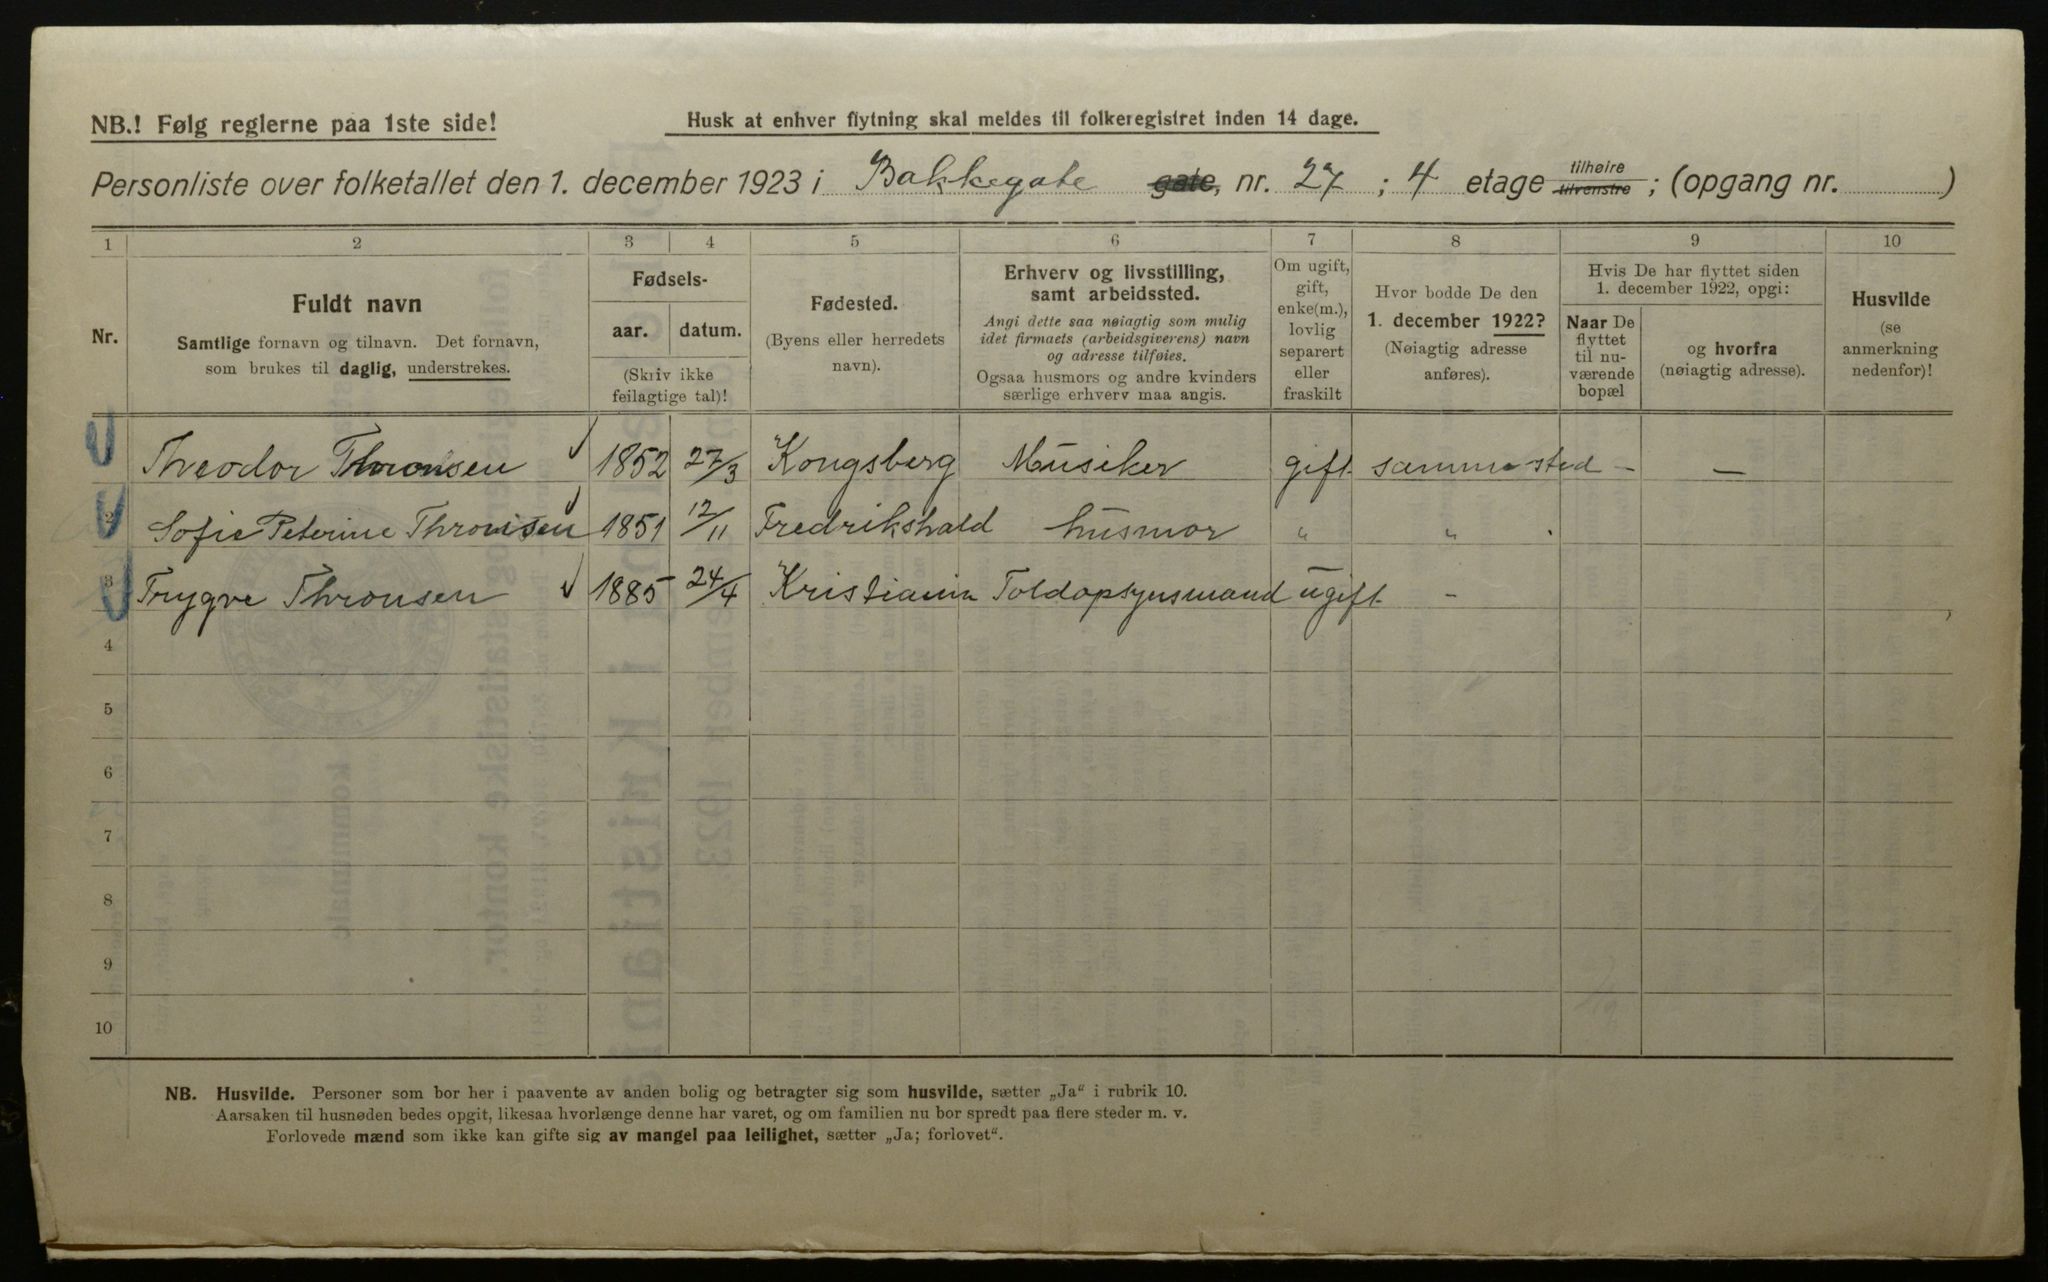 NB.! Følg reglerne paa 1ste side!
Husk at enhver flytning skal meldes til folkeregistret inden 14 dage.
Personliste over folketallet den 1. december 1923 i Bakkegate gate, nr. 27 ; 4 etage tilhøire tilvenstre ; (opgang nr. )
1 2 3 4 5 6 7 8 9 10
Nr.
Fuldt navn
Samtlige fornavn og tilnavn. Det fornavn,
som brukes til daglig, understrekes.
Fødsels-
aar. datum.
(Skriv ikke
feilagtige tal)!
Fødested.
(Byens eller herredets
navn).
Erhverv og livsstilling,
samt arbeidssted.
Angi dette saa nøiagtig som mulig
idet firmaets (arbeidsgiverens) navn
og adresse tilføies.
Ogsaa husmors og andre kvinders
særlige erhverv maa angis.
Om ugift,
gift,
enke(m.),
lovlig
separert
eller
fraskilt
Hvor bodde De den
1. december 1922?
(Nøiagtig adresse
anføres).
Hvis De har flyttet siden
1. december 1922, opgi:
Naar De
flyttet
til nu-
værende
bopæl
og hvorfra
(nøiagtig adresse).
Husvilde
(se
anmerkning
nedenfor)!
Theodor Thronsen 1852 27/3 Kongsberg Musiker gift samme sted – –
2 Sofie Peterine Thronsen 1851 12/11 Fredrikshald husmor " "
3 Trygve Thronsen 1885 24/4 Kristiania Toldopsynsmand ugift –
4
5
6
7
8
9
10
NB. Husvilde. Personer som bor her i paavente av anden bolig og betragter sig som husvilde, sætter „Ja“ i rubrik 10.
Aarsaken til husnøden bedes opgit, likesaa hvorlænge denne har varet, og om familien nu bor spredt paa flere steder m. v.
Forlovede mænd som ikke kan gifte sig av mangel paa leilighet, sætter „Ja; forlovet“.